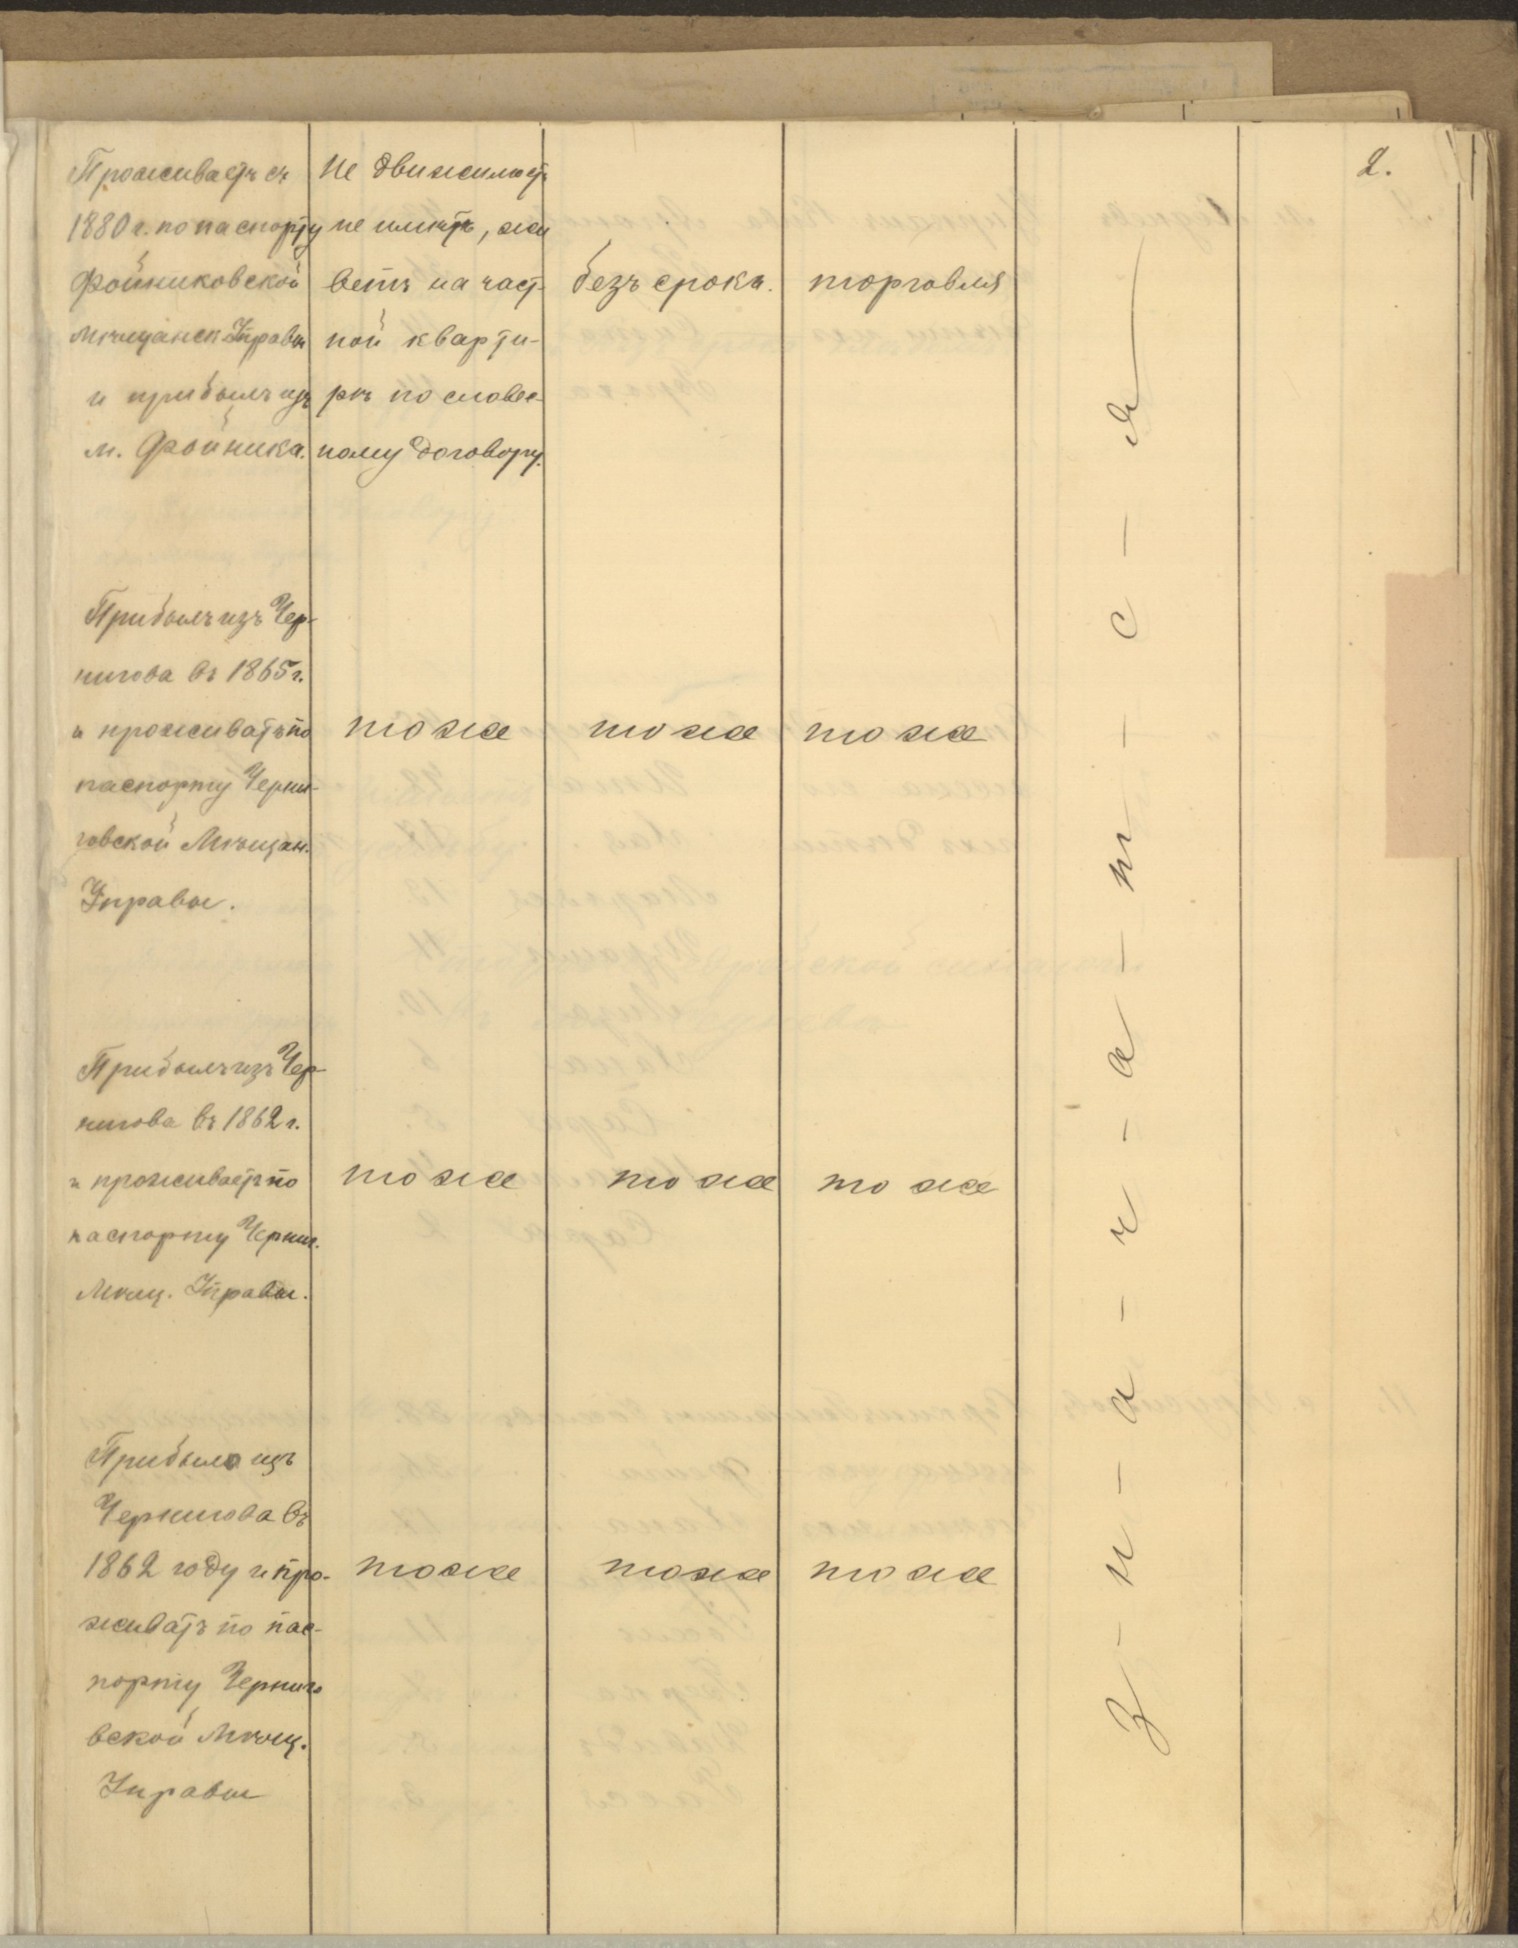 2.
Проживаетъ съ
1880 г. по паспорту
Фойниковской
Мѣщанск. Управы
и прибылъ изъ
м. Фойника.
Не движимость
не имѣетъ, жи
ветъ на част-
ной кварти-
рѣ по словес-
ному договору.
безъ срока.
торговля
Прибылъ изъ Чер-
нигова въ 1865 г.
и проживатъ по
паспорту Черни-
говской Мѣщан.
Управы.
тоже
тоже
тоже
Прибылъ изъ Чер-
нигова въ 1862 г.
и проживаетъ по
паспорту Черниг.
Мѣщ. Управы.
тоже
тоже
тоже
Прибыла изъ
Чернигова въ
1862 году и про-
живатъ по пас-
порту Черниго
вской Мѣщ.
Управы
тоже
тоже
тоже
З-н-а-ч-а-т-с-я